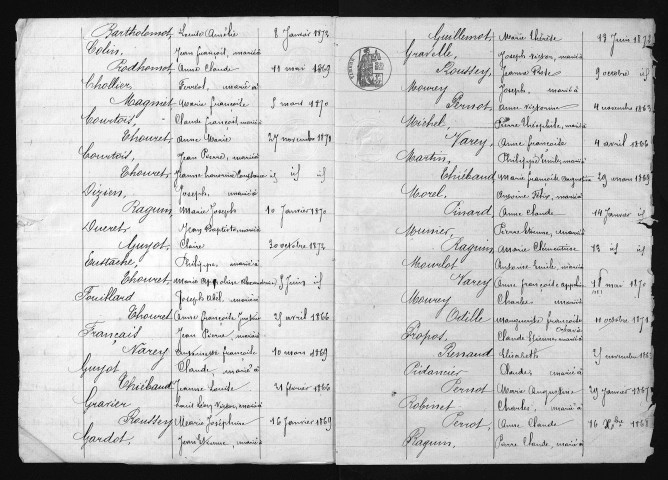 Bartholomot, Louise Amélie 8 Janvier 1873
Colin, Jean françois, marié à
Rodhomot Anne Claude 11 mai 1869
Chollier, Ferriol, marié à
Magnint Marie françoise 5 mars 1870
Courtois, Claude françois, marié à
Thouret, Anne Marie 27 novembre 1871
Courtois, Jean Pierre, marié à
Thouret, Jeanne honorine Constance id id
Dizien, Joseph, marié à
Raguin, Marie Joseph 10 Janvier 1870
Ducret, Jean Baptiste, marié à
Guyot, Claire 30 octobre 1872
Eustache, Philippe, marié à
Thouret, Marie Appoline Alexandrine 5 Juin id
Fouillard Joseph Abel, marié à
Thouret Anne françoise Justine 25 avril 1866
Français Jean Pierre, marié à
Varey françoise 10 mars 1869
Guyot Claude, marié à
Thiébaud Jeanne Louise 21 février 1866
Gravier Louis marié à
Roussey Marie Joséphine 16 Janvier 1869
Gardot, Jean Etienne, marié à
Guillemot, Marie Thérèse 13 Juin 1872
Gravelle, Joseph marié à
Roussey, Jeanne Rose 9 octobre id
Mourey Joseph, marié à
Pernot Anne 4 novembre 1863
Michel, Pierre Théophile, marié à
Varey, Anne françoise 4 avril 1866
Martin, Philippe Emile, marié à
Thiébaud Marie françoise Augustine 29 mars 1869
Morel, Antoine Félix, marié à
Pinard, Anne Claude 14 Janvier id
Munier, Pierre Etienne, marié à
Raguin, Marie Clémentine 13 id id
Mourlot Antoine Emile, marié à
Varey Anne françoise 18 mai 1870
Mourey Charles marié à
Odille Marguerite françoise Octavie 11 octobre 1871
Propos, Claude Etienne, marié à
Renaud Elisabeth 25 novembre
Pidancier Claude, marié à
Pernot Marie Augustine 29 Janvier 1867
Robinet Charles, marié à
Perrot, Anne Claude 16 Xbre 1868
Raguin, Pierre Claude, marié à